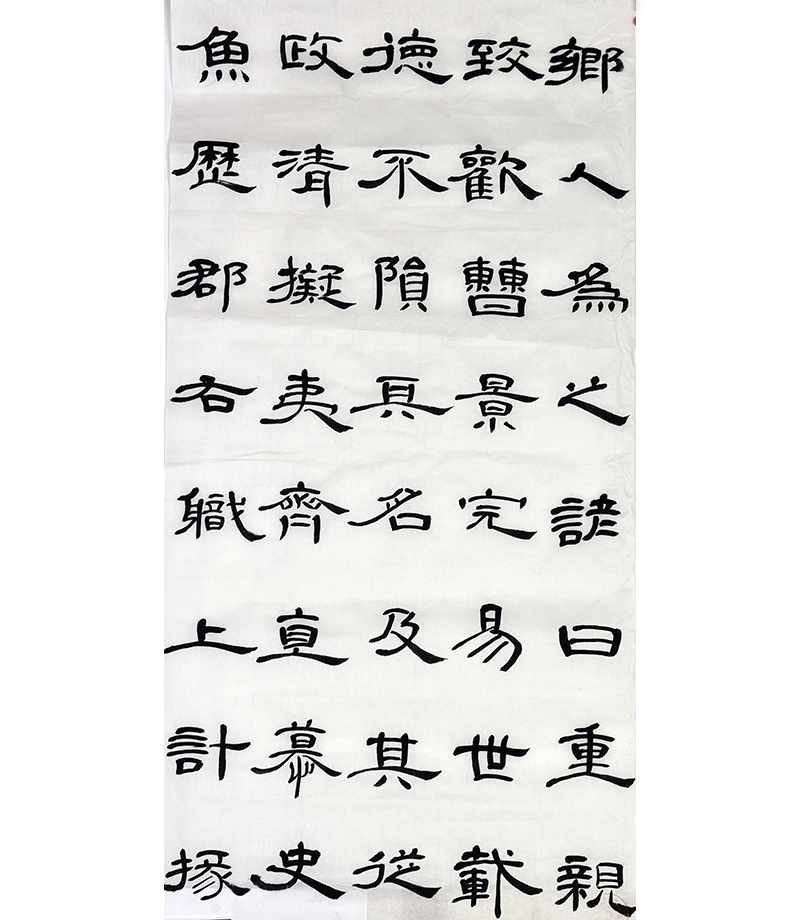 鄉人為之諺曰重親
致歡曹景完易世載
德不隕其名及其從
政清擬夷齊直慕史
魚歷郡右職上計掾